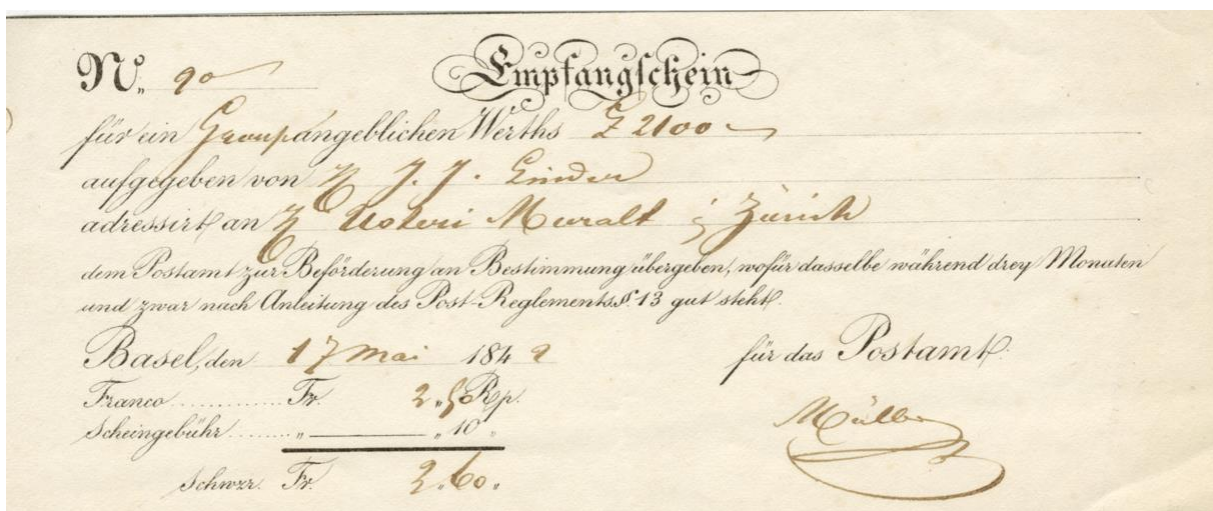 N. 90
Empfangschein
für ein Group angeblichen Werths 2100
aufgegeben von H J. J. Linder
adressirt an H Usteri Muralt Zürich
dem Postamt zur Beförderung an Bestimmung übergeben, wofür dasselbe während drey Monaten
und zwar nach Anleitung des Post-Reglements §. 13 gut steht.
Basel, den 17 Mai 1849
für das Postamt.
Franco Fr. 2.50 Rp.
Scheingebühr " " 10 "
Müller
Schwzr. Fr. 2.60.